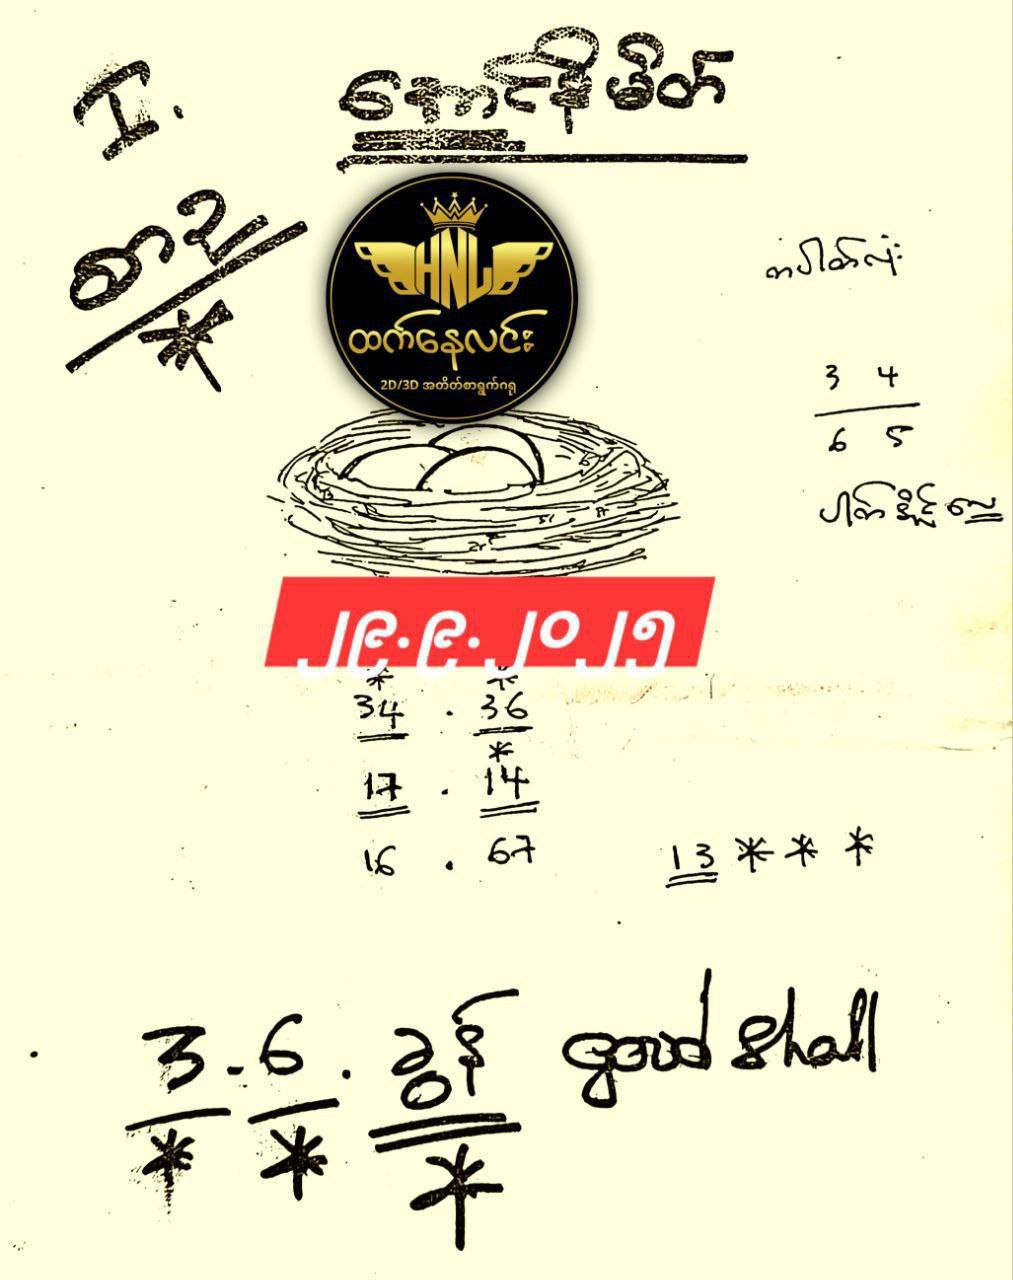 I.
အောင်နိမိတ်
စာ ၃
*
HNL
ထက်နေလင်း
2D/3D အတိတ်စာရွက်ဂရု
တပါတ်လုံး
3 4
6 5
ပါတ်နိုင်လေ
၂၉.၉.၂၀၂၅
* *
34 . 36
*
17 . 14
16 . 67
13 * * *
3 - 6 . ခွန် good shall
* * *